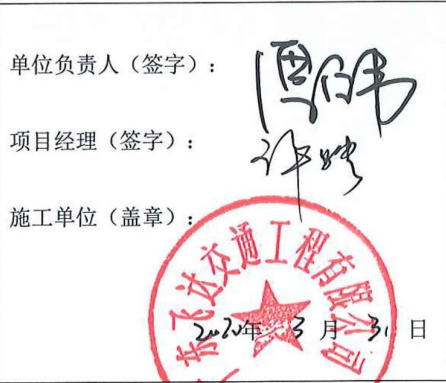 单位负责人（签字）：
项目经理（签字）：许
施工单位（盖章）：
东飞达交通工程有限公司
2020年 3 月 31 日